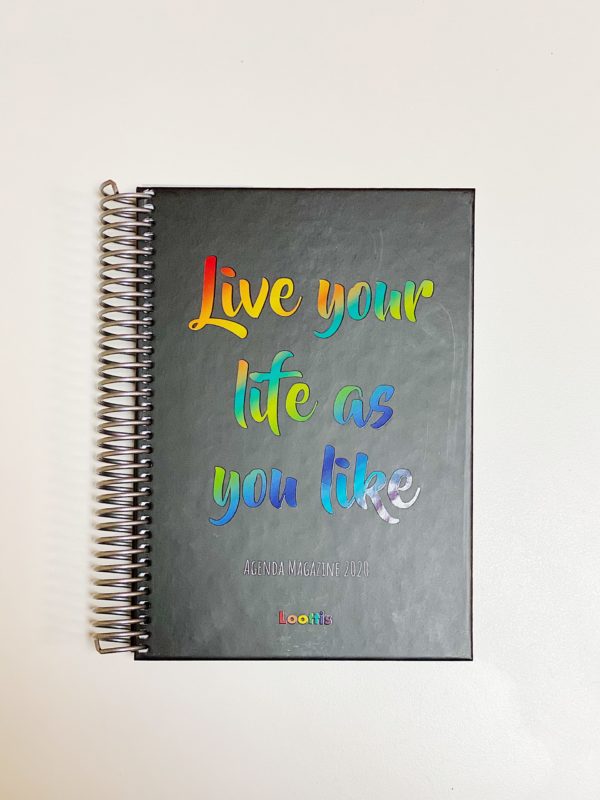 Live your
life as
you like
Agenda Magazine 2020
Looltis